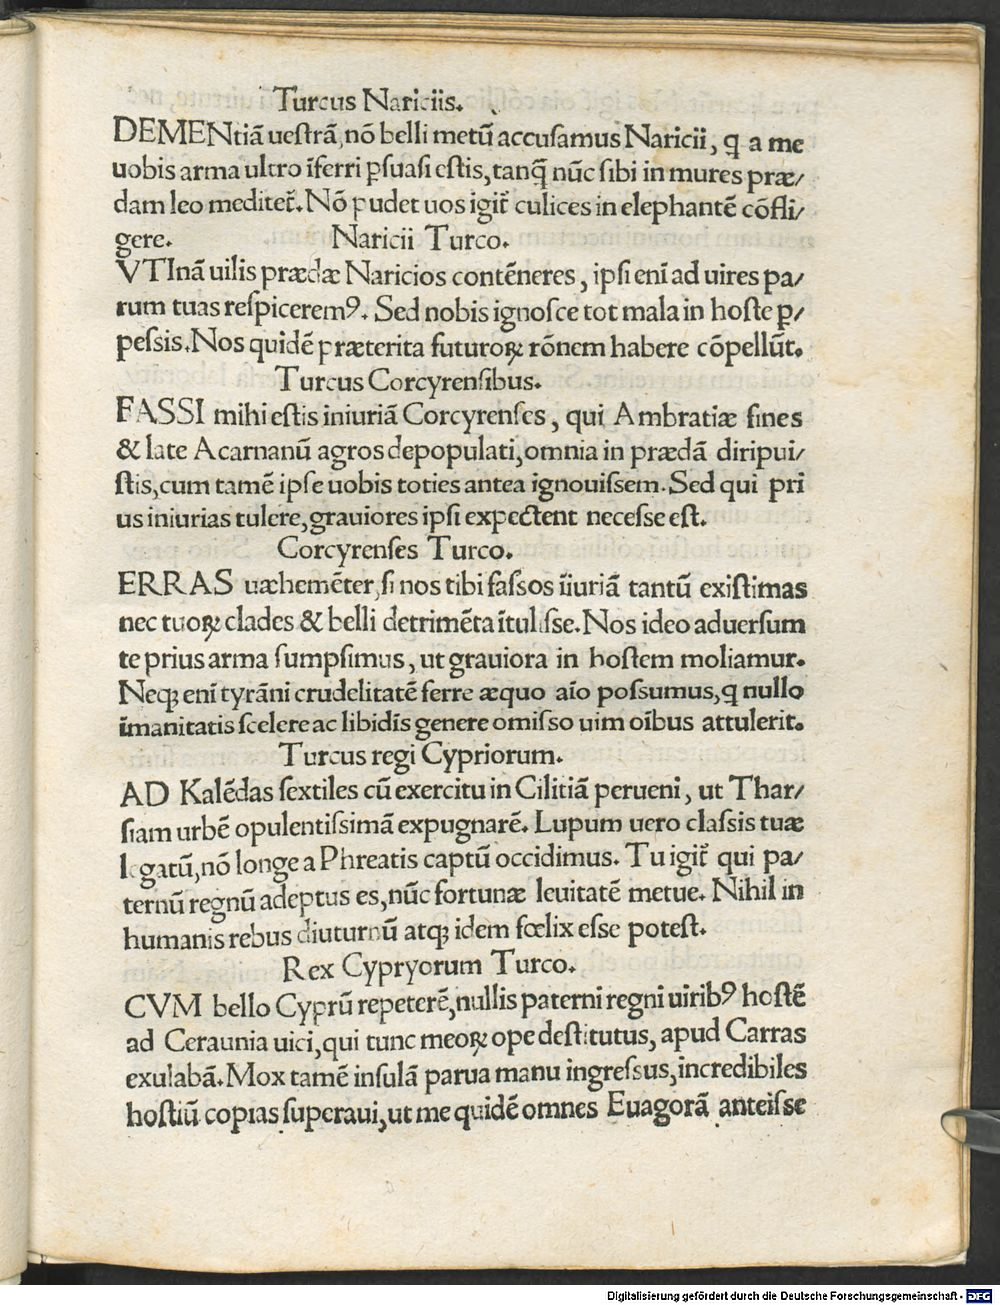 Turcus Nariciis.
DEMENtiā ueſtrā, nō belli metū accuſamus Naricii, ꝙ a me
uobis arma ultro īferri ꝑſuaſi eſtis, tanq̄ nūc ſibi in mures præ/
dam leo meditet̄. Nō pudet uos igit̄ culices in elephantē cōfli/
gere. Naricii Turco.
VTInā uilis prædæ Naricios contēneres, ipſi eni ad uires pa/
rum tuas reſpiceremꝰ. Sed nobis ignoſce tot mala in hoſte ꝑ/
peſsis. Nos quidē præterita futuroꝝ rōnem habere cōpellūt.
Turcus Corcyrenſibus.
FASSI mihi eſtis iniuriā Corcyrenſes, qui Ambratiæ fines
& late Acarnanū agros depopulati, omnia in prædā diripui/
ſtis, cum tamē ipſe uobis toties antea ignouiſſem. Sed qui pri
us iniurias tulere, grauiores ipſi expectent neceſse eſt.
Corcyrenſes Turco.
ERRAS uæhemēter, ſi nos tibi faſsos īiuriā tantū exiſtimas
nec tuoꝝ clades & belli detrimēta ītuliſse. Nos ideo aduerſum
te prius arma ſumpſimus, ut grauiora in hoſtem moliamur.
Neqꝫ eni tyrāni crudelitatē ferre æquo aīo poſsumus, ꝙ nullo
īmanitatis ſcelere ac libidīs genere omiſso uim oībus attulerit.
Turcus regi Cypriorum.
AD Kalēdas ſextiles cū exercitu in Cilitiā perueni, ut Thar/
ſiam urbē opulentiſsimā expugnarē. Lupum uero claſsis tuæ
legatū, nō longe a Phreatis captū occidimus. Tu igit̄ qui pa/
ternū regnū adeptus es, nūc fortunæ leuitatē metue. Nihil in
humanis rebus diuturnū atqꝫ idem fœlix eſse poteſt.
Rex Cypryorum Turco.
CVM bello Cyprū repeterē, nullis paterni regni uiribꝰ hoſtē
ad Ceraunia uici, qui tunc meoꝝ ope deſtitutus, apud Carras
exulabā. Mox tamē inſulā parua manu ingreſsus, incredibiles
hoſtiū copias ſuperaui, ut me quidē omnes Euagorā anteiſse
Digitalisierung gefördert durch die Deutsche Forschungsgemeinschaft - DFG